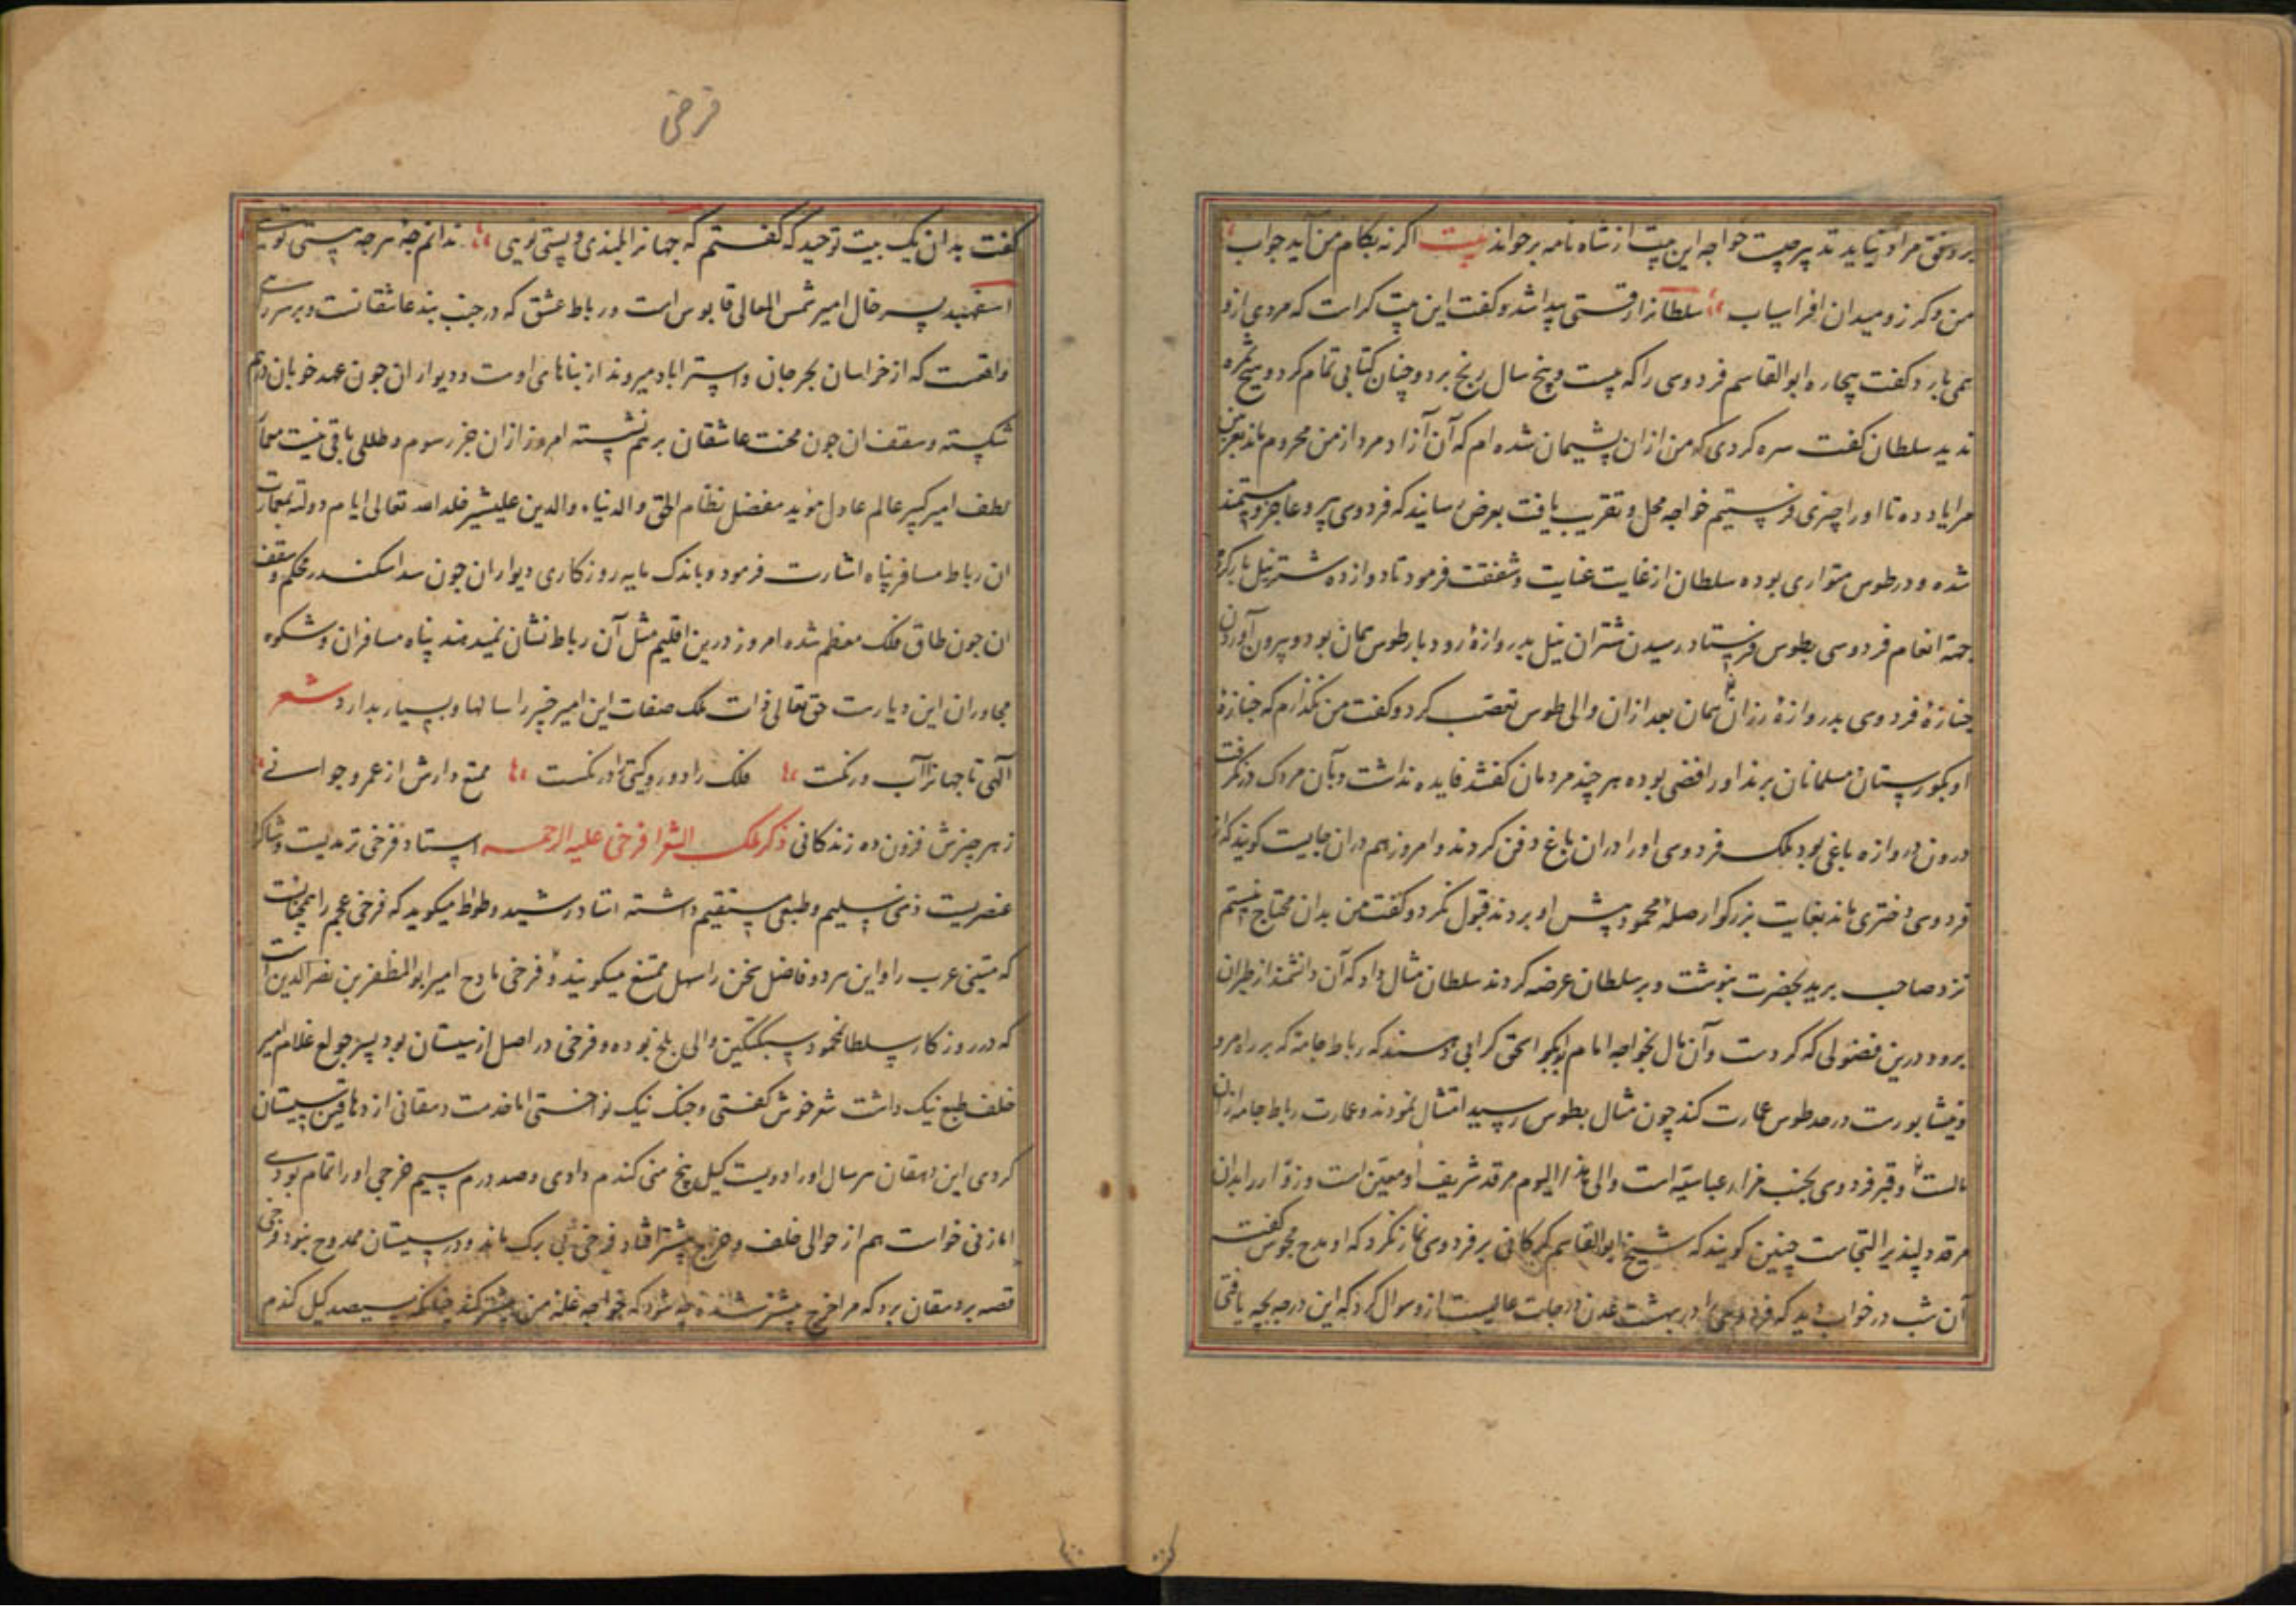 بر وفق مراد نیاید تدبیر چیست خواجه این بیت از شاه نامه برخواند بیت اکر نه بکام من آید جواب
من و کرز و میدان افراسیاب سلطانرا رقتی پیدا شد و کفت این بیت کراست که مردی ازو
همی بارد کفت بیچاره ابوالقاسم فردوسی راکه بیست و پنج سال رنج برد و چنان کتابی تمام کرد و هیچ ثمره
ندید سلطان کفت سره کردی که من ازان پشیمان شده ام که آن آزاد مرد از من محروم ماند بغزنین
مرا یاد ده تا او را چیزی فرستیم خواجه محل و تقریب یافت بعرض رسانید که فردوسی پیر و عاجز و مستمند
شده و در طوس متواری بوده سلطان از غایت عنایت و شفقت فرمود تا دوازده شتر نیل بار کرده
جهته انعام فردوسی بطوس فرستاد رسیدن شتران نیل بدروازهٔ رودبار طوس همان بود و بیرون آوردن
جنازهٔ فردوسی بدروازهٔ رزان همان بعد ازان والی طوس تعصب کرد و کفت من نکذارم که جنازهٔ
او بکورستان مسلمانان برند او رافضی بوده هر چند مردمان کفتند فایده نداشت و بآن مردک در نکرفت
درون دروازه باغی بود ملک فردوسی او را دران باغ دفن کردند و امروز هم دران جایست کویند که از
فردوسی دختری ماند بغایت بزرکوار صلهٔ محمود پیش او بردند قبول نکرد و کفت من بدان محتاج نیستم
نزد صاحب برید بحضرت بنوشت و بر سلطان عرضه کردند سلطان مثال داد که آن دانشمند از طبران
برود درین فضولی که کردست و آن مال بخواجه امام ابوبکر اسحق کرامی دهند که رباط جامه که بر راه مرو
و نیشابورست در حد طوس عمارت کند چون مثال بطوس رسید امتثال نمودند و عمارت رباط جامه ازان
مالست و قبر فردوسی بجنب مزار عباسیه است والی هذا الیوم مرقد شریف او معین است و زوار را بدان
مرقد دلپذیر التجاست چنین کویند که شیخ ابوالقاسم کرکانی بر فردوسی نماز نکرد که او مدح مجوس کفت
آن شب در خواب دید که فردوسی را در بهشت عدن درجات عالیست ازو سوال کرد که این درجه بچه یافتی
فرخی
کفت بدان یک بیت توحید که کفتم که جهانرا بلندی و پستی تویی ندانم چهٔ هر چه هستی تویی
اسفهبد پسر خال امیر شمس المعالی قابوس است و رباط عشق که در جنب بند عاشقانست و بر سر راهی
واقعست که از خراسان بجرجان و استراباد میروند از بناهای اوست و دیوار ان جون عهد خوبان درهم
شکسته و سقف ان جون محنت عاشقان برهم نشسته امروز ازان جز رسوم و طللی باقی نیست معمار
لطف امیر کبیر عالم عادل موید مفضل نظام الحق والدنیا والدین علیشیر خلد الله تعالی ایام دولته بعمارت
ان رباط مسافر پناه اشارت فرمود و باندک مایه روزکاری دیوار ان جون سد اسکندر محکم و سقف
ان جون طاق فلک معظم شده امروز درین اقلیم مثل آن رباط نشان نمیدهند پناه مسافران و شکوه
مجاوران این دیارست حق تعالی ذات ملک صفات این امیر خیر را سالها و بسیار بدارد شعر
آلهی تا جهانرا آب و رنکست فلک را دور و کیتی را درنکست ممتع دارش از عمر و جوانی
زهر چیزش فزون ده زندکانی ذکر ملک الشعرا فرخی علیه الرحمه استاد فرخی ترمدیست و شاکرد
عنصریست ذهنی سلیم و طبعی مستقیم داشته استاد رشید وطواط میکوید که فرخی عجم را همچنانست
که متنبی عرب را و این هر دو فاضل سخن را سهل ممتنع میکویند و فرخی مادح امیر ابوالمظفر بن نصر الدین است
که در روزکار سلطان محمود سبکتکین والی بلخ بوده و فرخی در اصل از سیستان بود پسر جولوغ غلام امیر
خلف طبع نیک داشت شعر خوش کفتی و چنک نیک نواختی اما خدمت دهقانی از دهاقین سیستان
کردی این دهقان هر سال او را دویست کیل پنج منی کندم دادی و صد درم سیم خرجی او را تمام بودی
اما زنی خواست هم از حوالی خلف و خرج بیشتر افتاد فرخی بی برک ماند و در سیستان ممدوح نبود فرخی
قصه بر دهقان برد که مرا خرج بیشتر شده چه شود که خواجه غله من بیشتر کند چنانکه سیصد کیل کندم